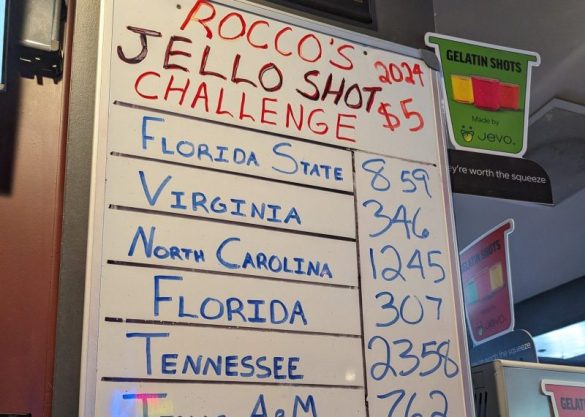 ROCCO'S
JELLO SHOT 2024
CHALLENGE $5
FLORIDA STATE 859
VIRGINIA 346
NORTH CAROLINA 1245
FLORIDA 307
TENNESSEE 2358
A&M 762
GELATIN SHOTS
Made by
Jevo.
They're worth the squeeze
GELATIN SHOTS
Made by
Jevo.
worth the squeeze
GELAT